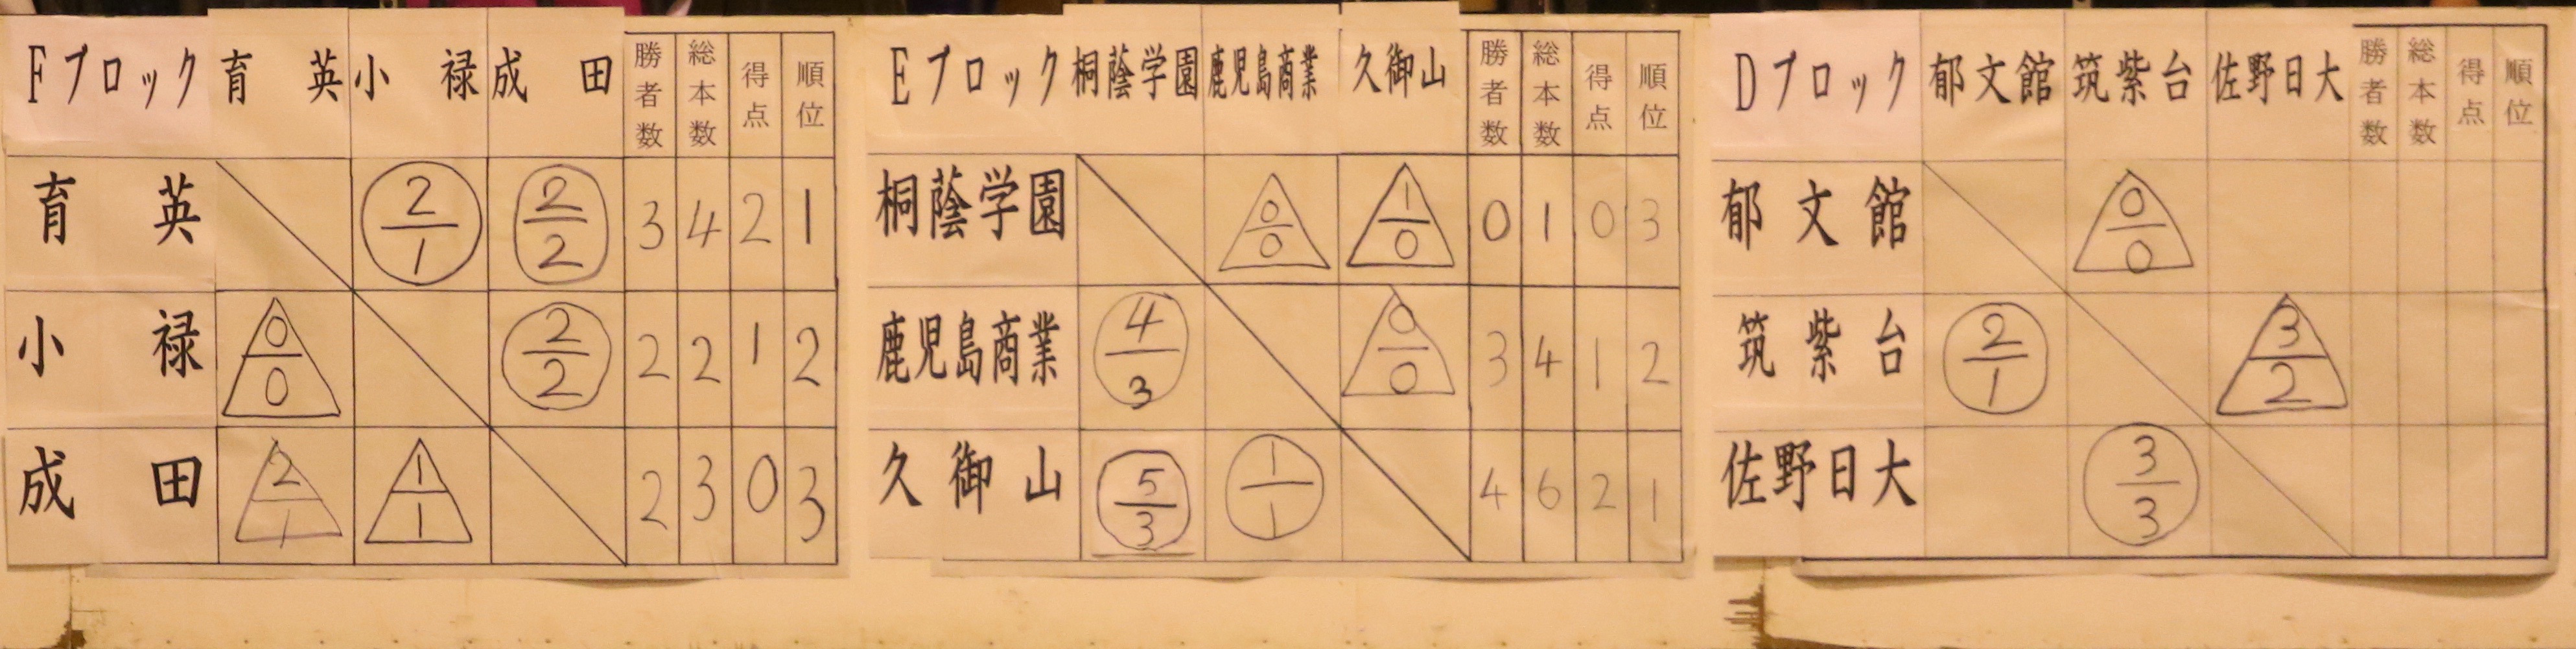 Fブロック 育英 小禄 成田 勝者数 総本数 得点 順位
育英 2/1 2/2 3 4 2 1
小禄 0/0 2/2 2 2 1 2
成田 2/1 1/1 2 3 0 3
Eブロック 桐蔭学園 鹿児島商業 久御山 勝者数 総本数 得点 順位
桐蔭学園 0/0 1/0 0 1 0 3
鹿児島商業 4/3 0/0 3 4 1 2
久御山 5/3 1/1 4 6 2 1
Dブロック 郁文館 筑紫台 佐野日大 勝者数 総本数 得点 順位
郁文館 0/0
筑紫台 2/1 3/2
佐野日大 3/3